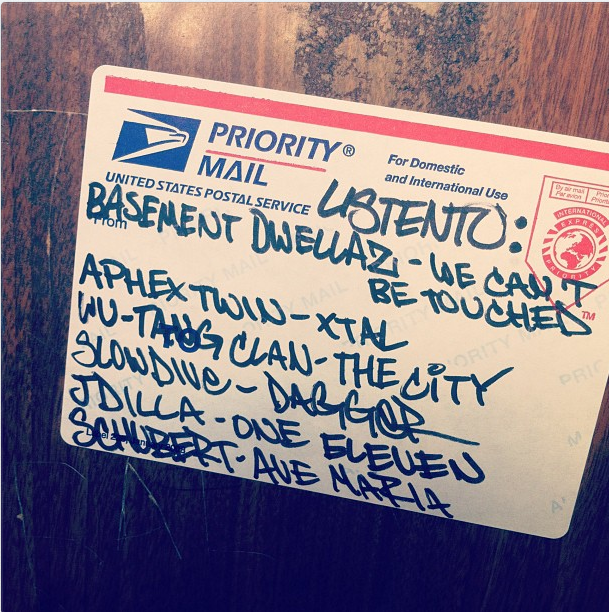 PRIORITY®
MAIL
UNITED STATES POSTAL SERVICE
For Domestic
and International Use
By air mail
Par avion
INTERNATIONAL
EXPRESS
PRIORITY
TM
From
LISTEN TO:
BASEMENT DWELLAZ - WE CAN'T
BE TOUCHED
APHEX TWIN - XTAL
WU-TANG CLAN - THE CITY
SLOWDIVE - DAGGER
J DILLA - ONE ELEVEN
SCHUBERT - AVE MARIA